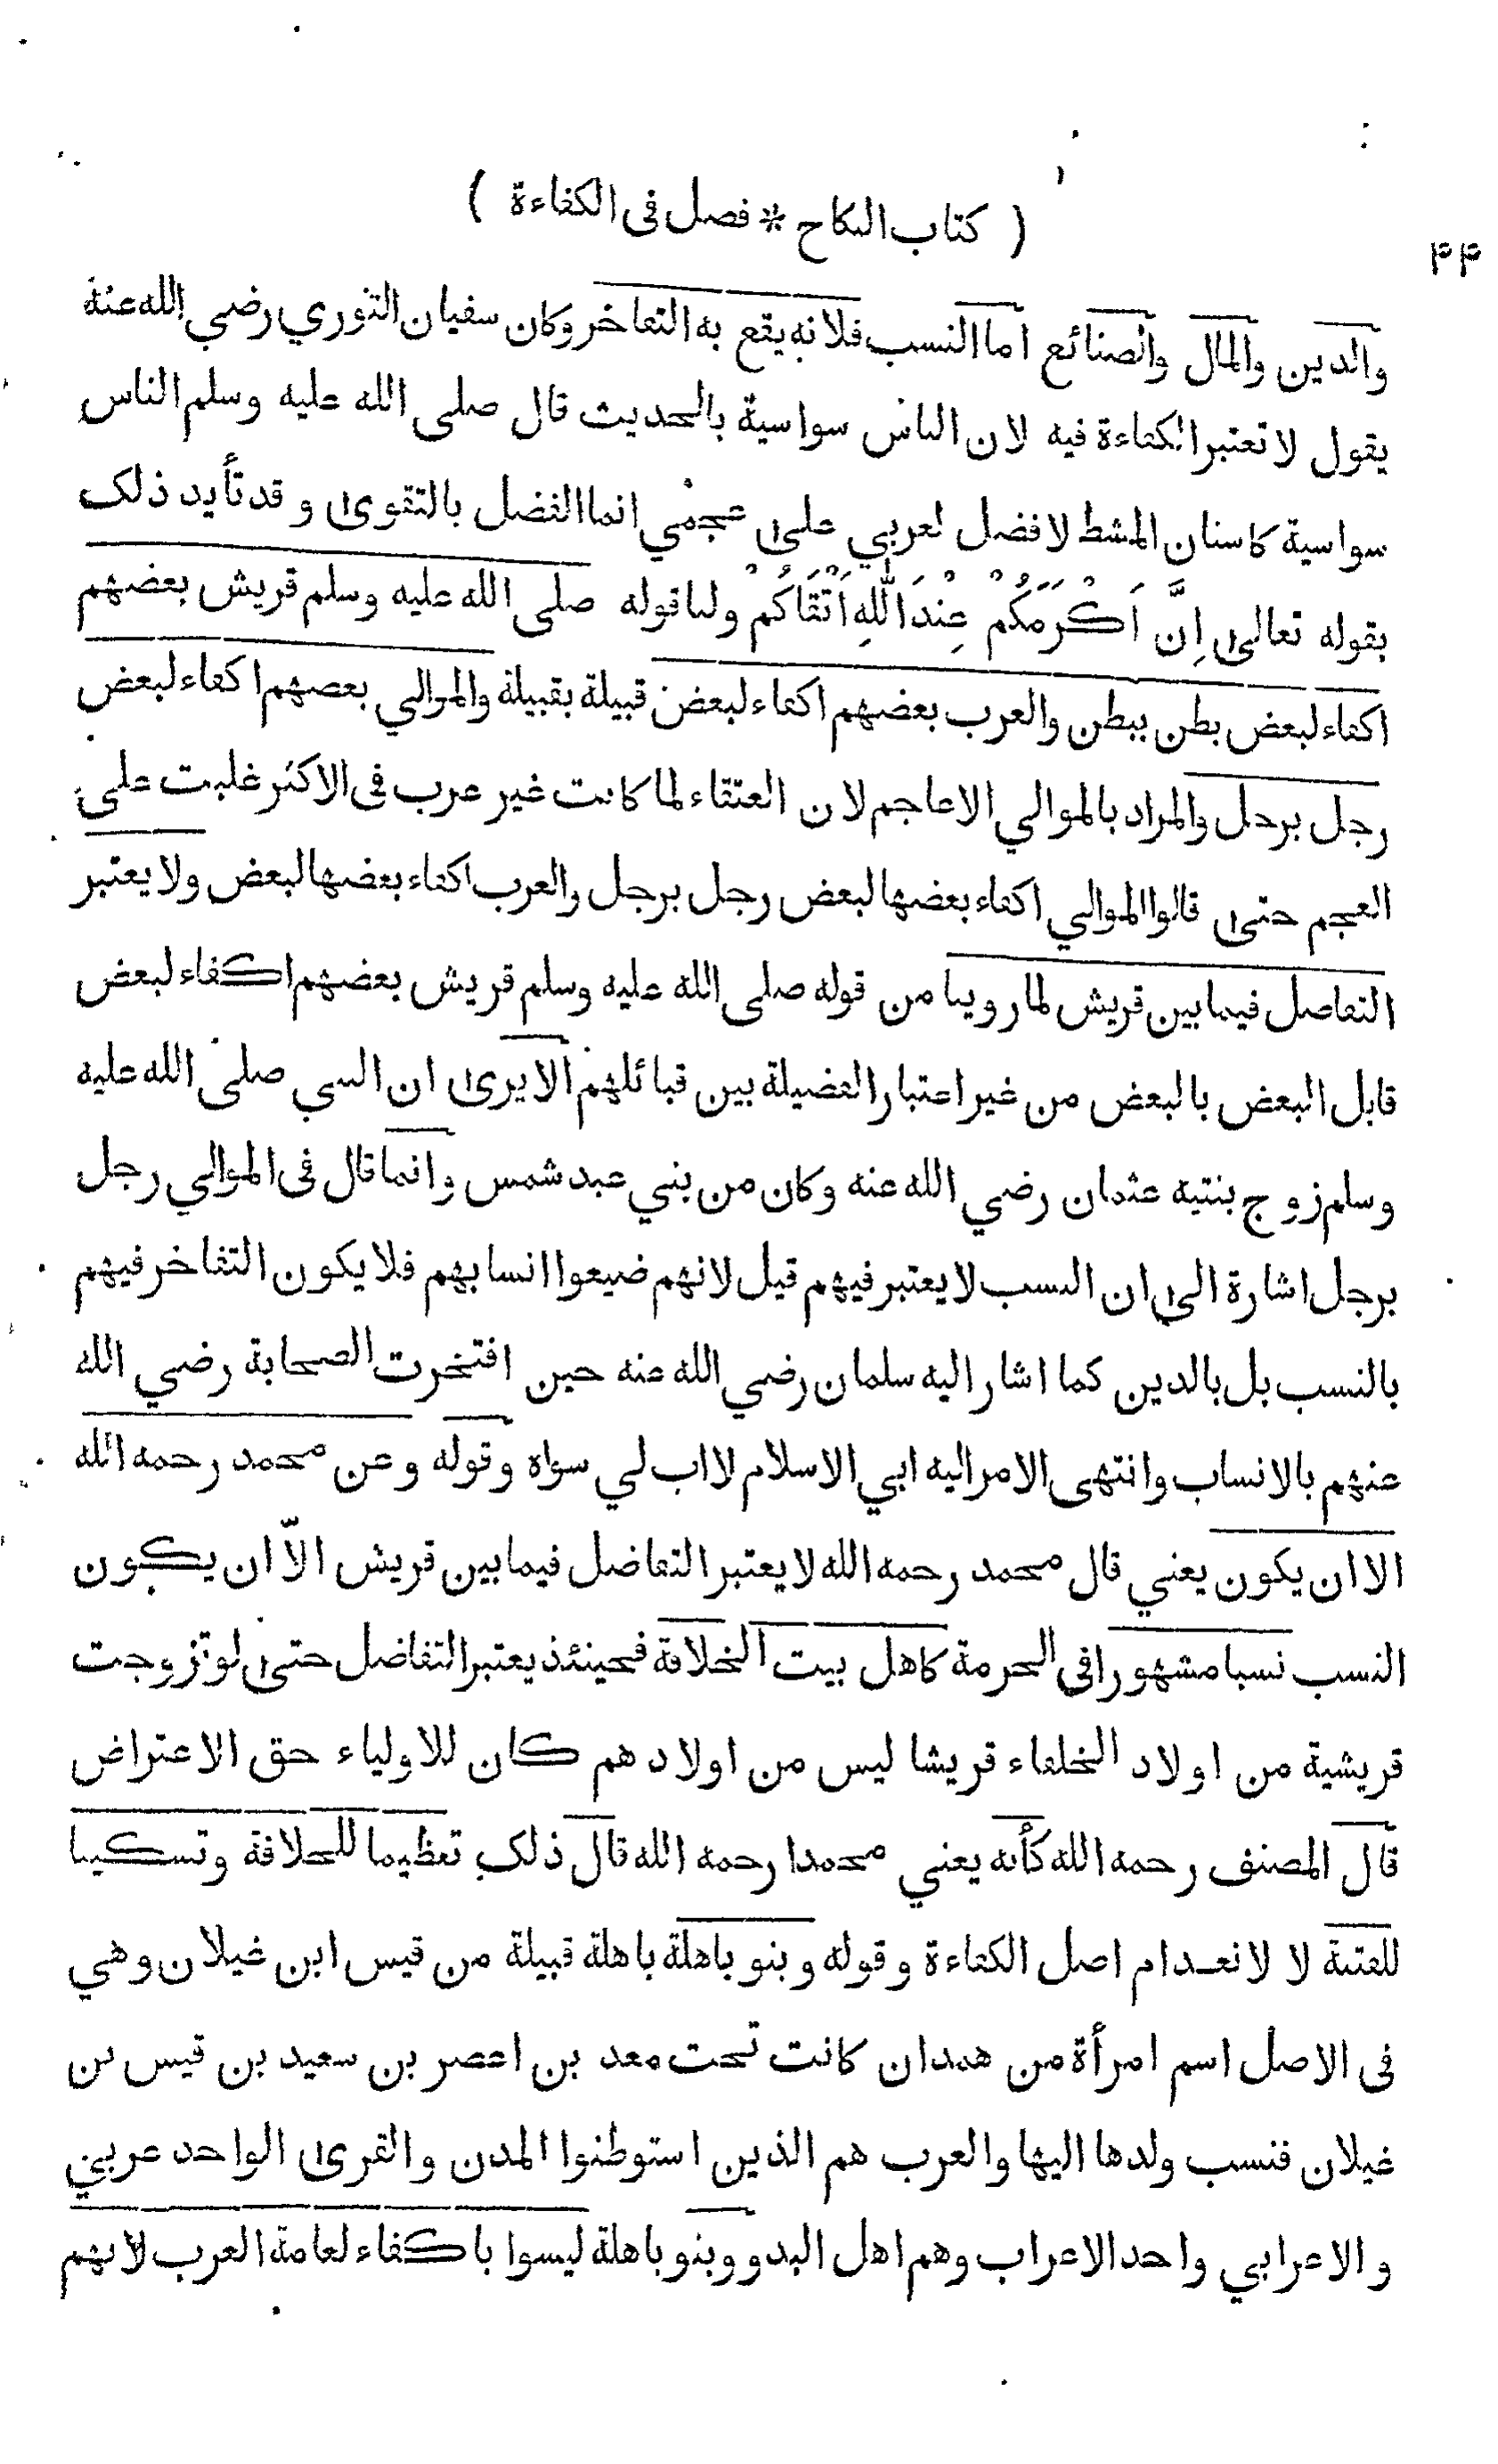 ( كتاب النكاح * فصل فى الكفاءة )
۴۴
والدين والمال والصنائع اما النسب فلانه يقع به التفاخر وكان سفيان الثوري رضي الله عنه
يقول لا تعتبر الكفاءة فيه لان الناس سواسية بالحديث قال صلى الله عليه وسلم الناس
سواسية كاسنان المشط لا فضل لعربي على عجمي انما الفضل بالتقوى و قد تأيد ذلك
بقوله تعالى اِنَّ اَكْرَمَكُمْ عِنْدَ اللّٰهِ اَتْقَاكُمْ ولنا قوله صلى الله عليه وسلم قريش بعضهم
اكفاء لبعض بطن ببطن والعرب بعضهم اكفاء لبعض قبيلة بقبيلة والموالي بعضهم اكفاء لبعض
رجل برجل والمراد بالموالي الاعاجم لان العتقاء لما كانت غير عرب فى الاكثر غلبت على
العجم حتى قالوا الموالي اكفاء بعضها لبعض رجل برجل والعرب اكفاء بعضها لبعض ولا يعتبر
التفاضل فيما بين قريش لما روينا من قوله صلى الله عليه وسلم قريش بعضهم اكفاء لبعض
قابل البعض بالبعض من غير اعتبار الفضيلة بين قبائلهم الا يرى ان النبي صلى الله عليه
وسلم زوج بنتيه عثمان رضي الله عنه وكان من بني عبد شمس وانما قال فى الموالي رجل
برجل اشارة الى ان النسب لا يعتبر فيهم قيل لانهم ضيعوا انسابهم فلا يكون التفاخر فيهم
بالنسب بل بالدين كما اشار اليه سلمان رضي الله عنه حين افتخرت الصحابة رضي الله
عنهم بالانساب وانتهى الامر اليه ابي الاسلام لا اب لي سواه وقوله وعن محمد رحمه الله
الا ان يكون يعني قال محمد رحمه الله لا يعتبر التفاضل فيما بين قريش الّا ان يكون
النسب نسبا مشهورا فى الحرمة كاهل بيت الخلافة فحينئذ يعتبر التفاضل حتى لو تزوجت
قريشية من اولاد الخلفاء قريشا ليس من اولادهم كان للاولياء حق الاعتراض
قال المصنف رحمه الله كأنه يعني محمدا رحمه الله قال ذلك تعظيما للخلافة وتسكينا
للفتنة لا لانعدام اصل الكفاءة وقوله وبنو باهلة باهلة قبيلة من قيس ابن غيلان وهي
فى الاصل اسم امرأة من همدان كانت تحت معد بن اعصر بن سعيد بن قيس بن
غيلان فنسب ولدها اليها والعرب هم الذين استوطنوا المدن والقرى الواحد عربي
والاعرابي واحد الاعراب وهم اهل البدو وبنو باهلة ليسوا باكفاء لعامة العرب لانهم